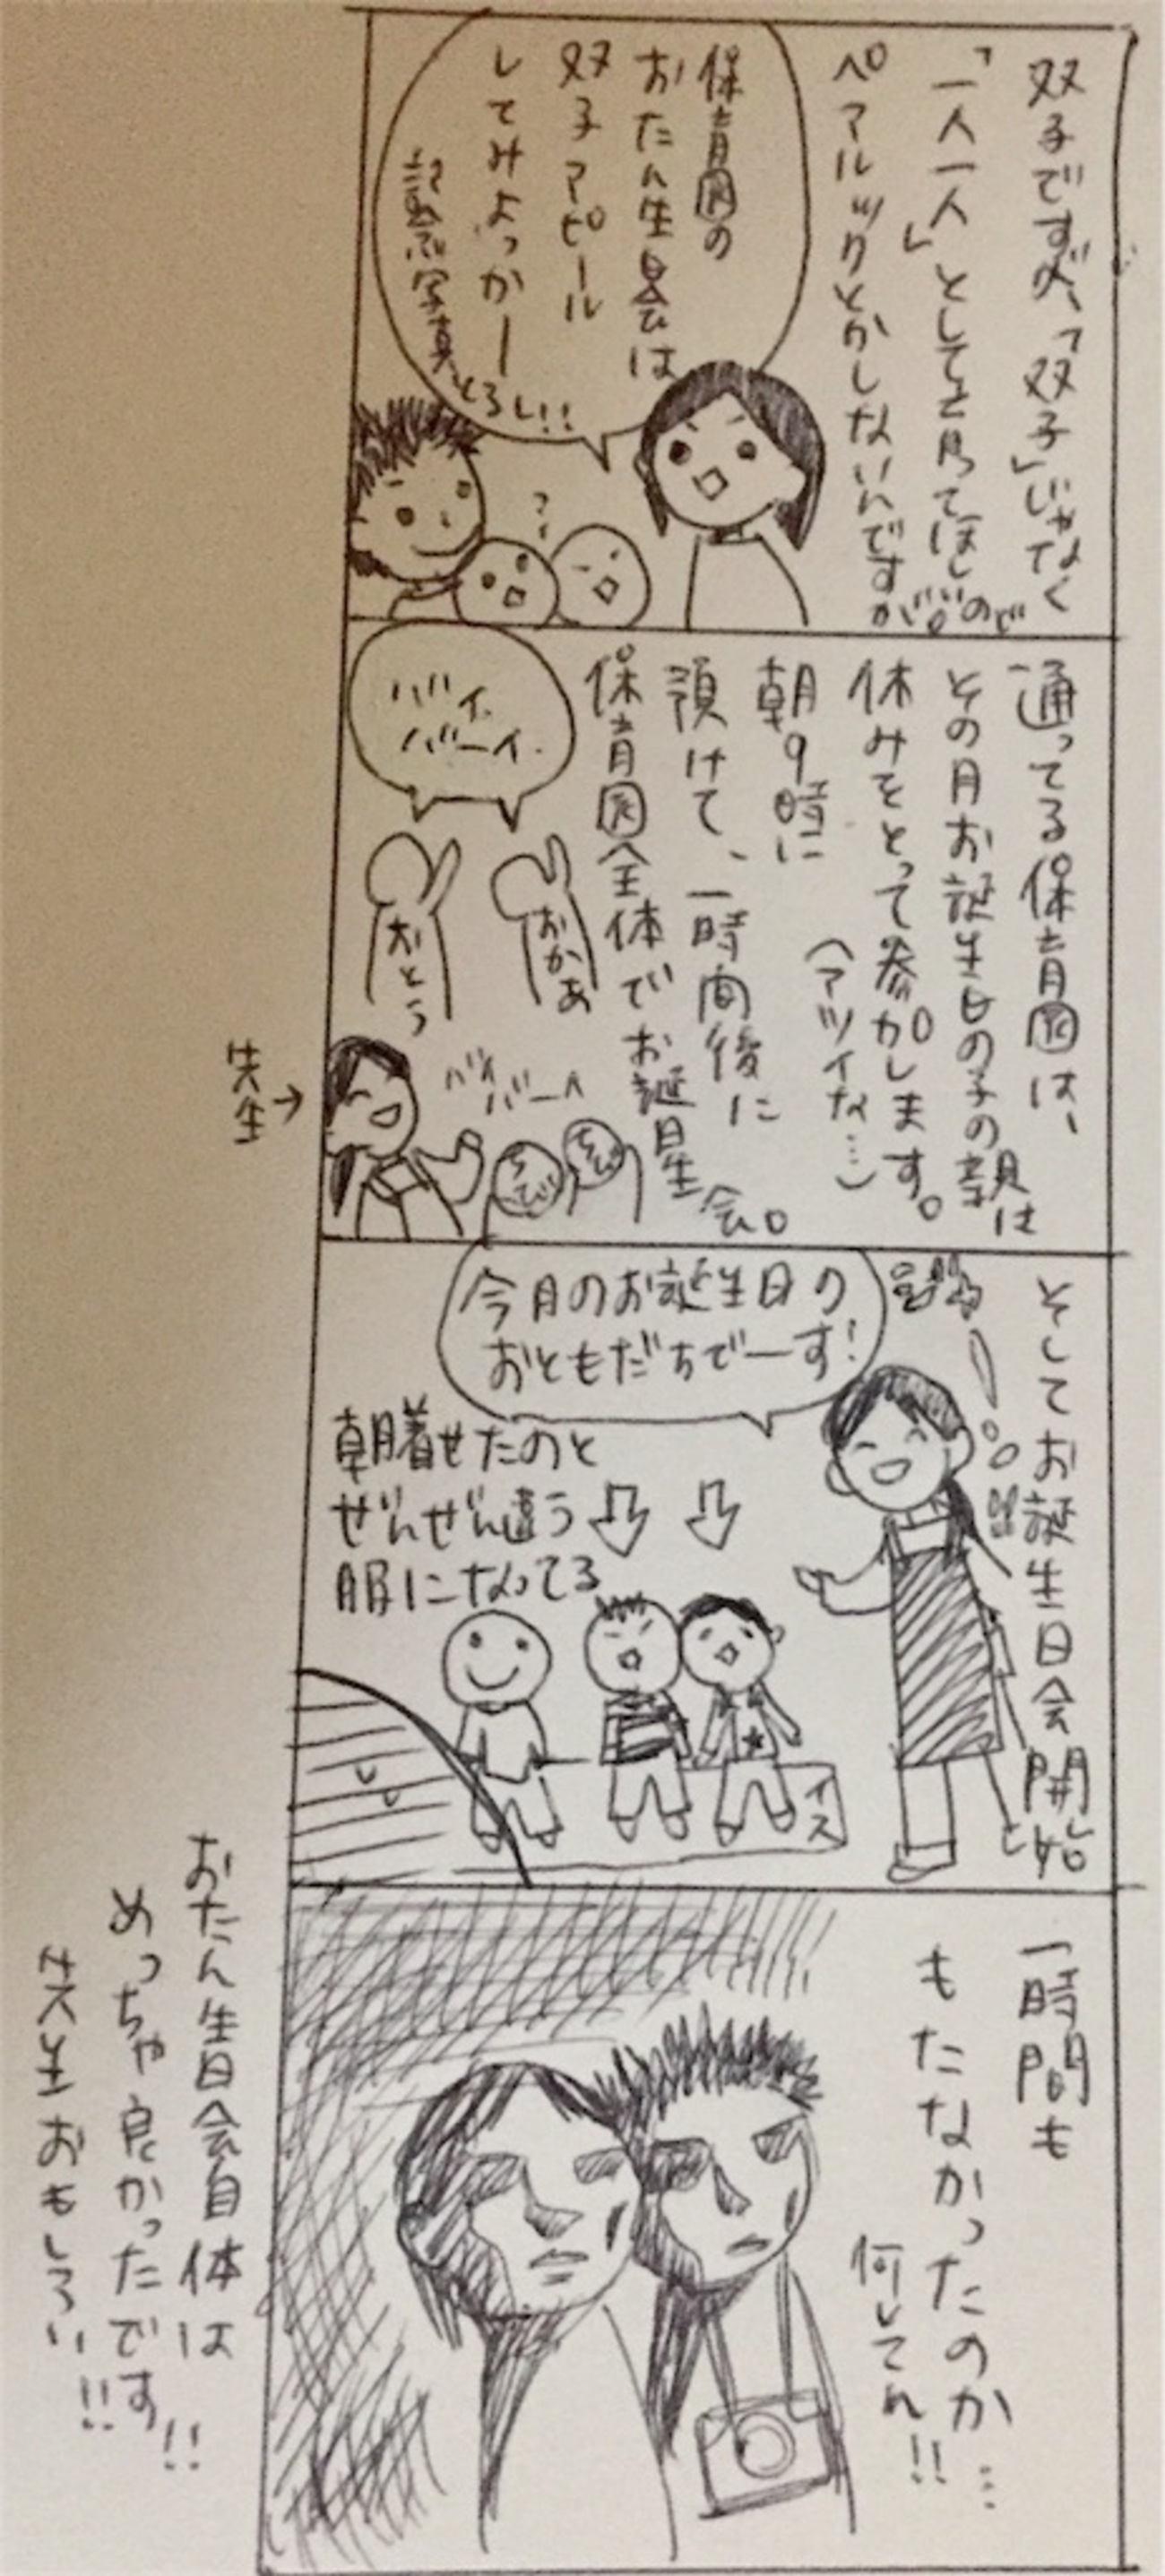 双子ですが、「双子」じゃなく
「一人一人」として見てほしいので
ペアルックとかしないんですが。
保育園の
おたん生日会は
双子アピール
してみよっかー
記念写真とろし!!
?
通ってる保育園は、
その月お誕生日の子の親は
休みをとって参加します。
(アツイな…)
朝9時に
預けて、一時間後に
保育園全体でお誕生日会。
バイ
バーイ
おかあ
おとう
バイ
バーイ
ちび
ちび
先生→
そしてお誕生日会開始
今月のお誕生日の
おともだちでーす!
朝着せたのと
ぜんぜん違う
服になってる
イス
一時間も
もたなかったのか…
何してん!!
おたん生日会自体は
めっちゃ良かったです!!
先生おもしろい!!